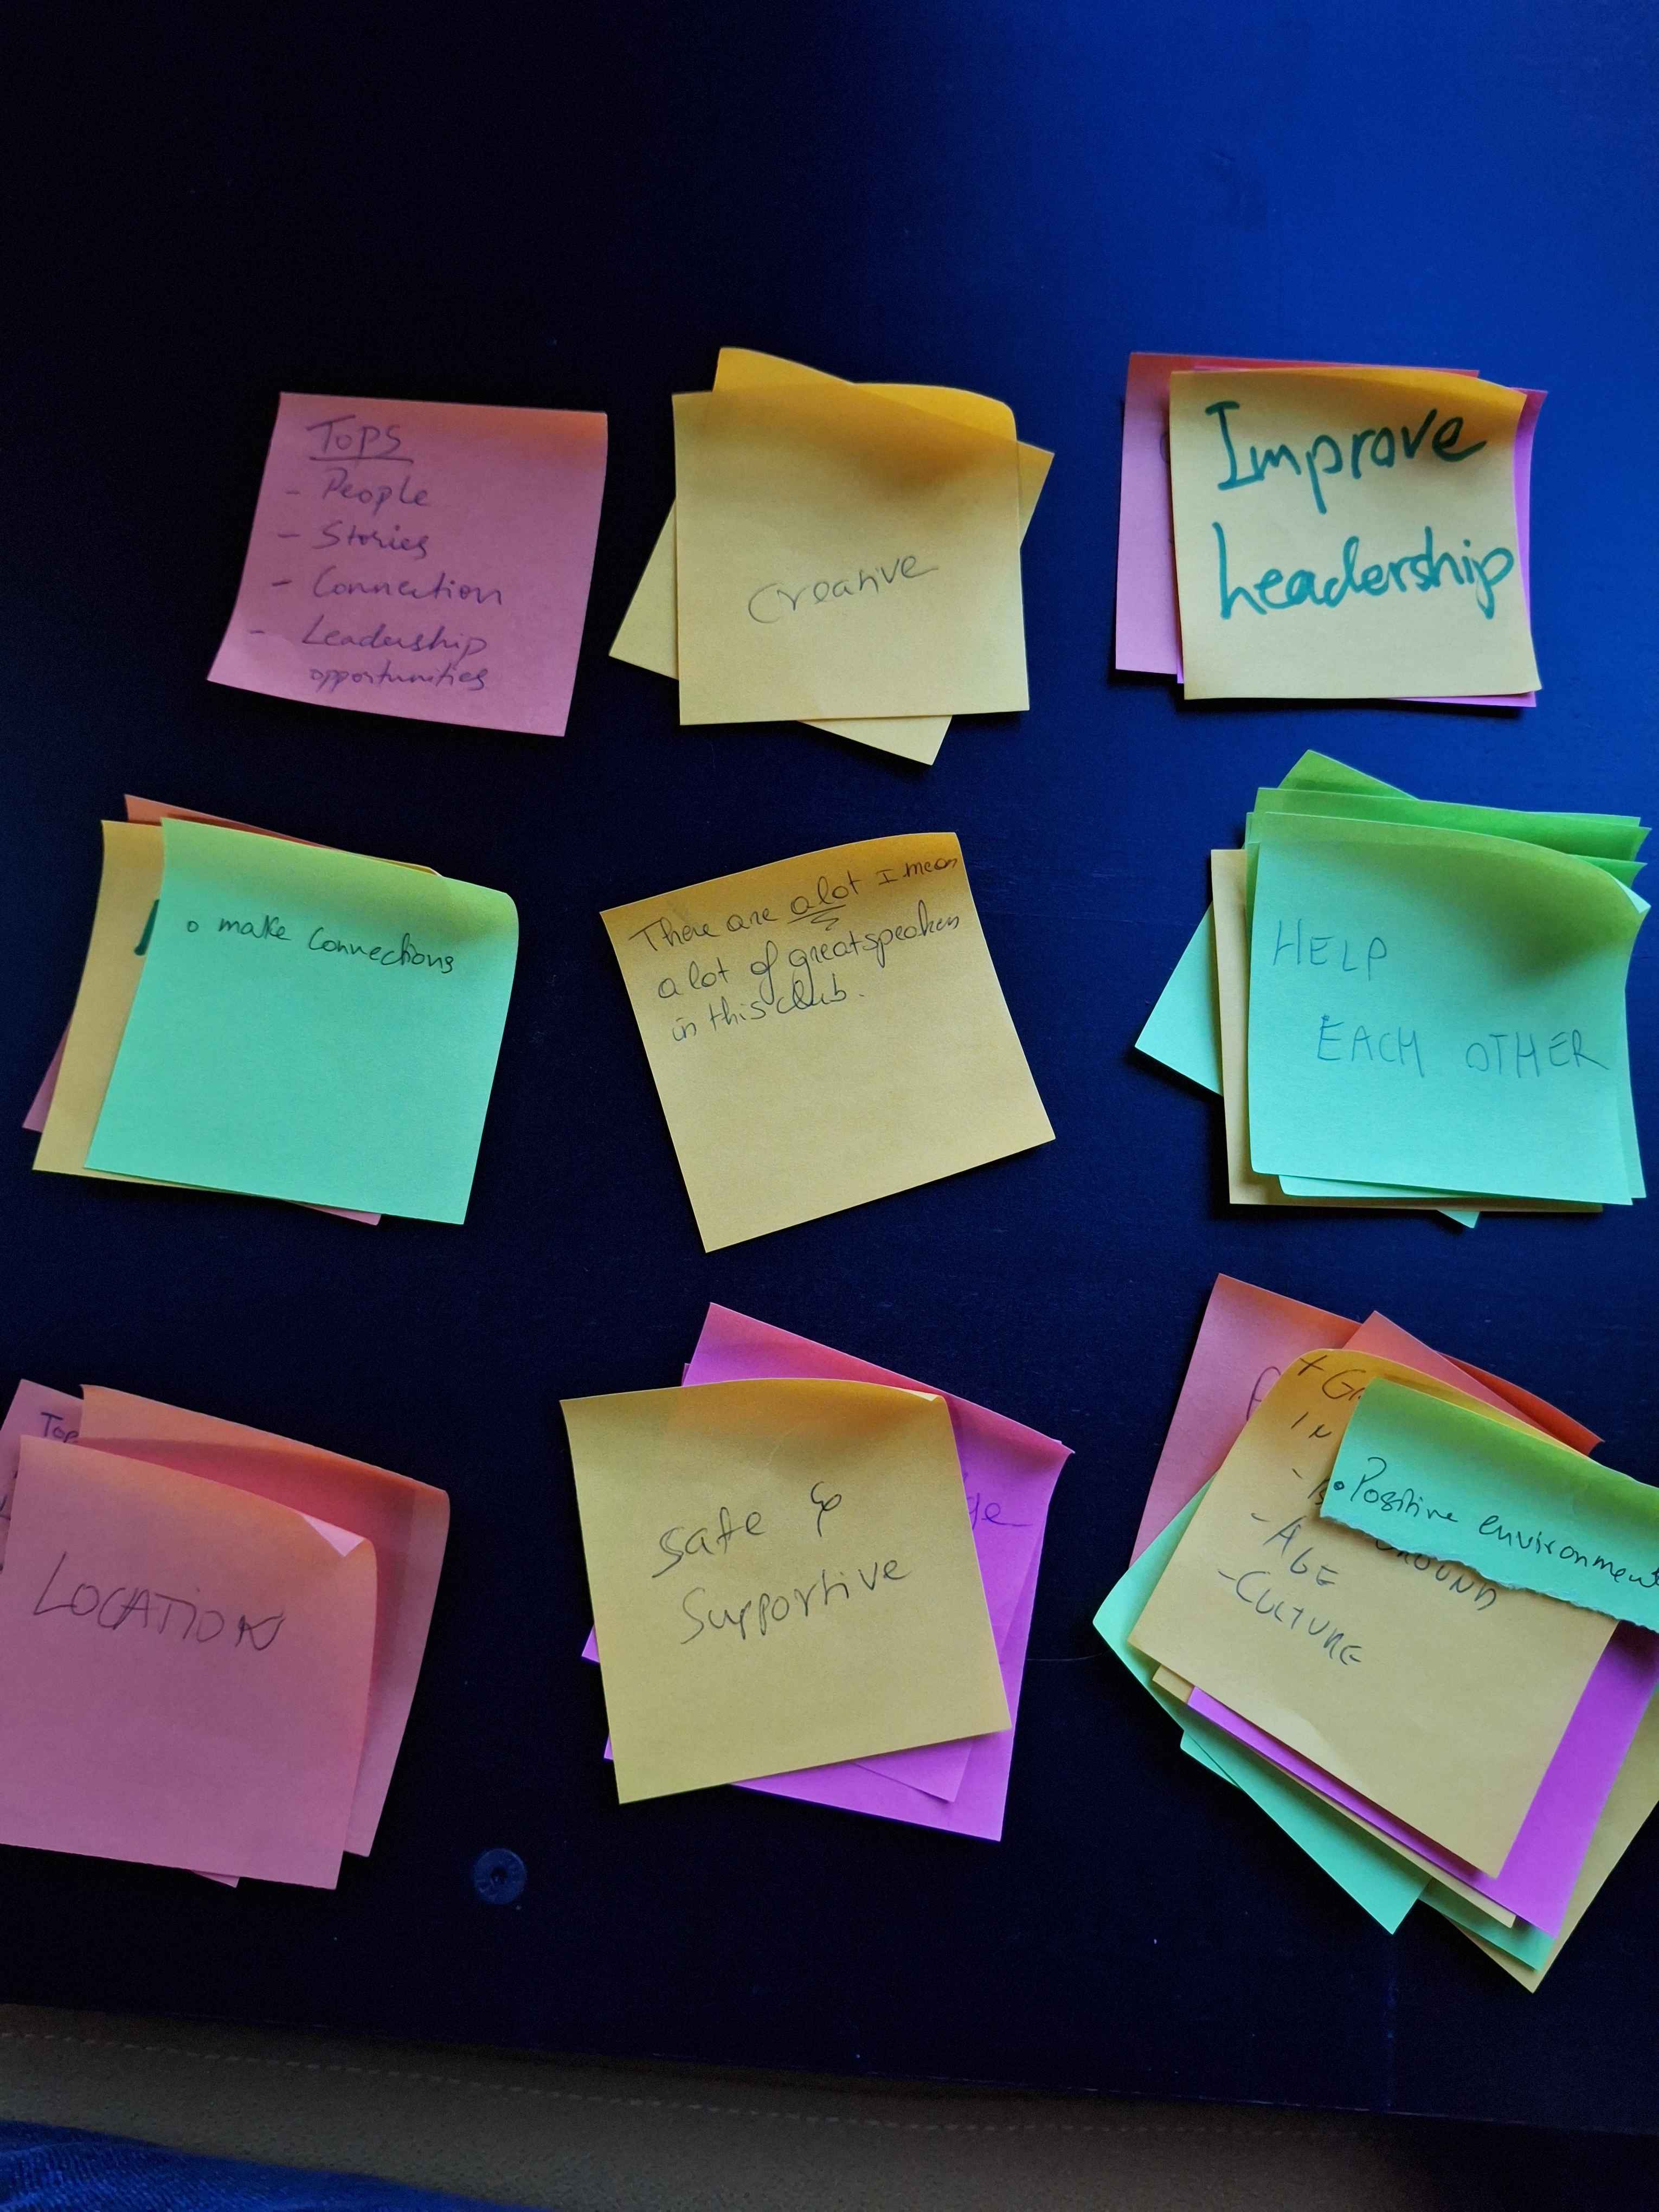 TOPS
- People
- Stories
- Connection
- Leadership
opportunities
Creative
Improve
Leadership
o make connections
There are a lot I mean
a lot of great speakers
in this club.
HELP
EACH OTHER
Top
LOCATION
Safe &
Supportive
+ G
IN
- AGE
- CULTURE
• Positive environment